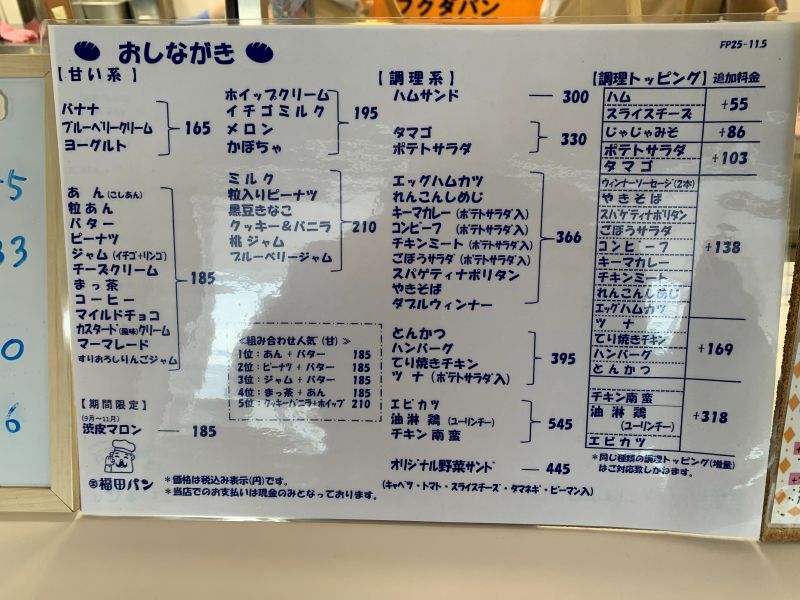 フクダパン
おしながき
FP25-11.5
【甘い系】
バナナ
ブルーベリークリーム
ヨーグルト
165
あん(こしあん)
粒あん
バター
ピーナツ
ジャム(イチゴ+リンゴ)
チーズクリーム
まっ茶
コーヒー
マイルドチョコ
カスタード(風味)クリーム
マーマレード
すりおろしりんごジャム
185
【期間限定】
(9月～11月)
渋皮マロン ― 185
福田パン
ホイップクリーム
イチゴミルク
メロン
かぼちゃ
195
ミルク
粒入りピーナツ
黒豆きなこ
クッキー&バニラ
桃ジャム
ブルーベリージャム
210
≪組み合わせ人気(甘)≫
1位:あん+バター 185
2位:ピーナツ+バター 185
3位:ジャム+バター 185
4位:まっ茶+あん 185
5位:クッキーバニラ+ホイップ 210
*価格は税込み表示(円)です。
*当店でのお支払いは現金のみとなっております。
【調理系】
ハムサンド ― 300
タマゴ
ポテトサラダ
330
エッグハムカツ
れんこんしめじ
キーマカレー(ポテトサラダ入)
コンビーフ(ポテトサラダ入)
チキンミート(ポテトサラダ入)
ごぼうサラダ(ポテトサラダ入)
スパゲティナポリタン
やきそば
ダブルウィンナー
366
とんかつ
ハンバーグ
てり焼きチキン
ツナ(ポテトサラダ入)
395
エビカツ
油淋鶏(ユーリンチー)
チキン南蛮
545
オリジナル野菜サンド ― 445
(キャベツ・トマト・スライスチーズ・タマネギ・ピーマン入)
【調理トッピング】追加料金
ハム
スライスチーズ
+55
じゃじゃみそ +86
ポテトサラダ
タマゴ
+103
ウィンナーソーセージ(2本)
やきそば
スパゲティナポリタン
ごぼうサラダ
コンビーフ
キーマカレー
チキンミート
れんこんしめじ
エッグハムカツ
+138
ツナ
てり焼きチキン
ハンバーグ
とんかつ
+169
チキン南蛮
油淋鶏
(ユーリンチー)
エビカツ
+318
*同じ種類の調理トッピング(増量)
はご対応致しかねます。